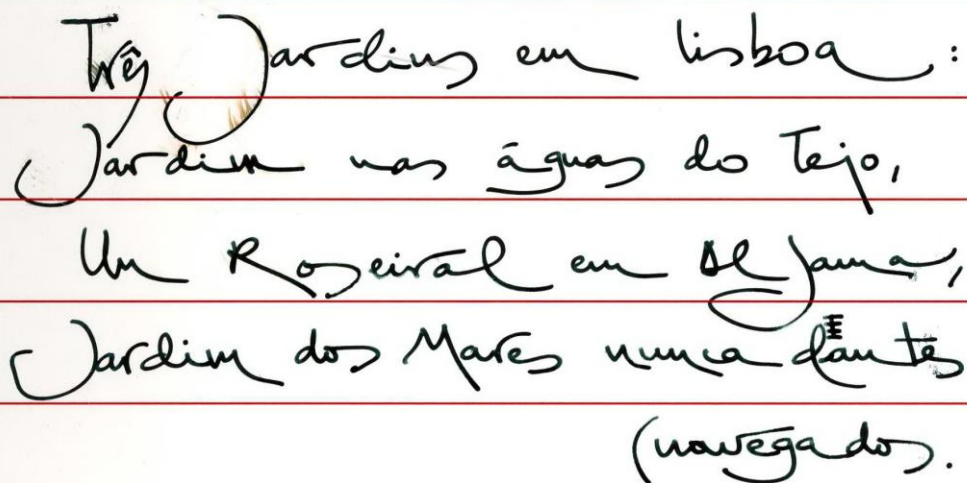 Três Jardins em Lisboa :
Jardim nas águas do Tejo,
Um Roseiral em Al Jama,
Jardim dos Mares nunca dantes
(navegados.